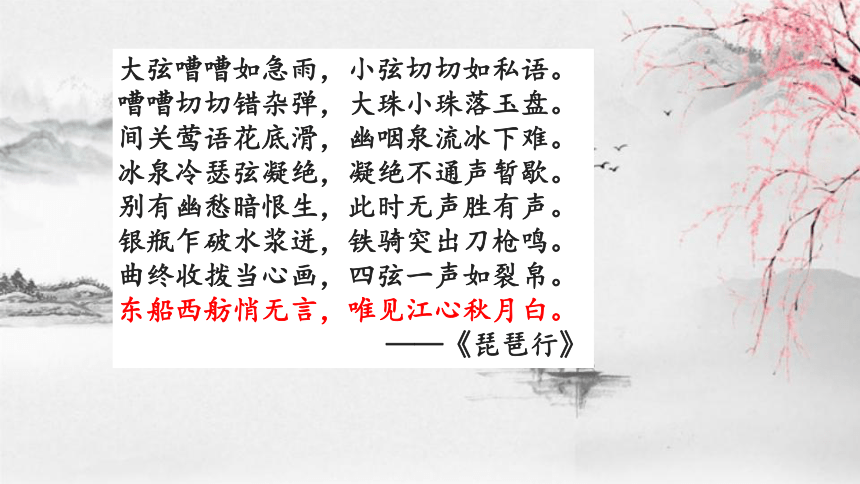 大弦嘈嘈如急雨，小弦切切如私语。
嘈嘈切切错杂弹，大珠小珠落玉盘。
间关莺语花底滑，幽咽泉流冰下难。
冰泉冷瑟弦凝绝，凝绝不通声暂歇。
别有幽愁暗恨生，此时无声胜有声。
银瓶乍破水浆迸，铁骑突出刀枪鸣。
曲终收拨当心画，四弦一声如裂帛。
东船西舫悄无言，唯见江心秋月白。
——《琵琶行》